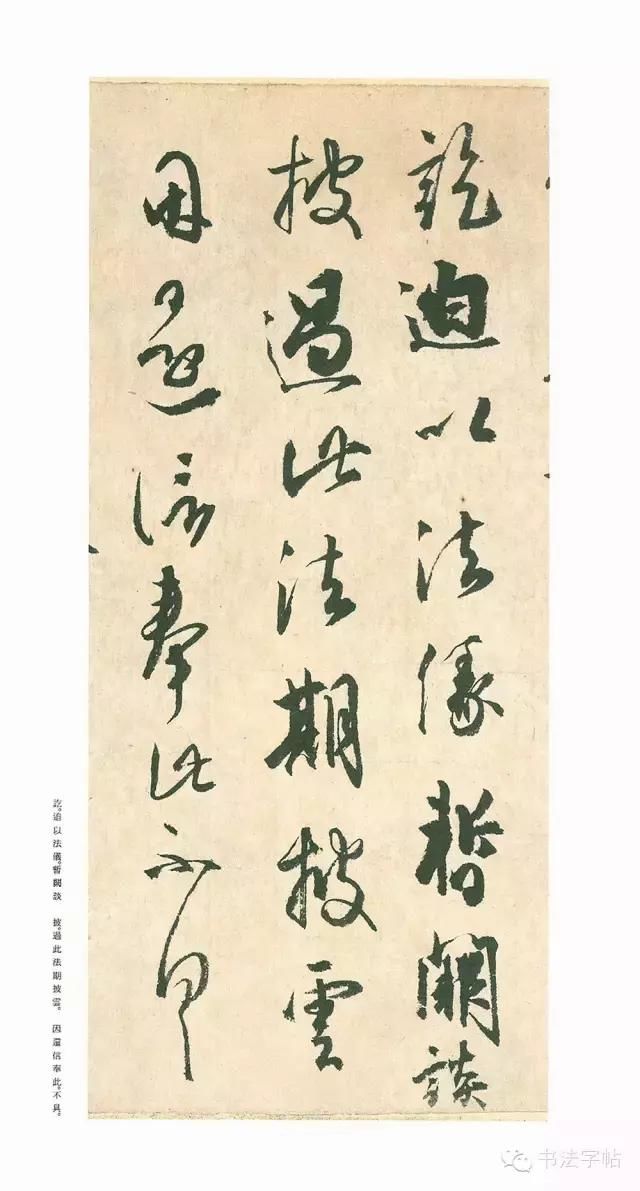 訖迫以法縁暫闕談
披過此法期披雲
因還信奉此不具
訖。迫以法儀。暫闕談 披。過此法期披雲。 因還信奉此。不具。
书法字帖